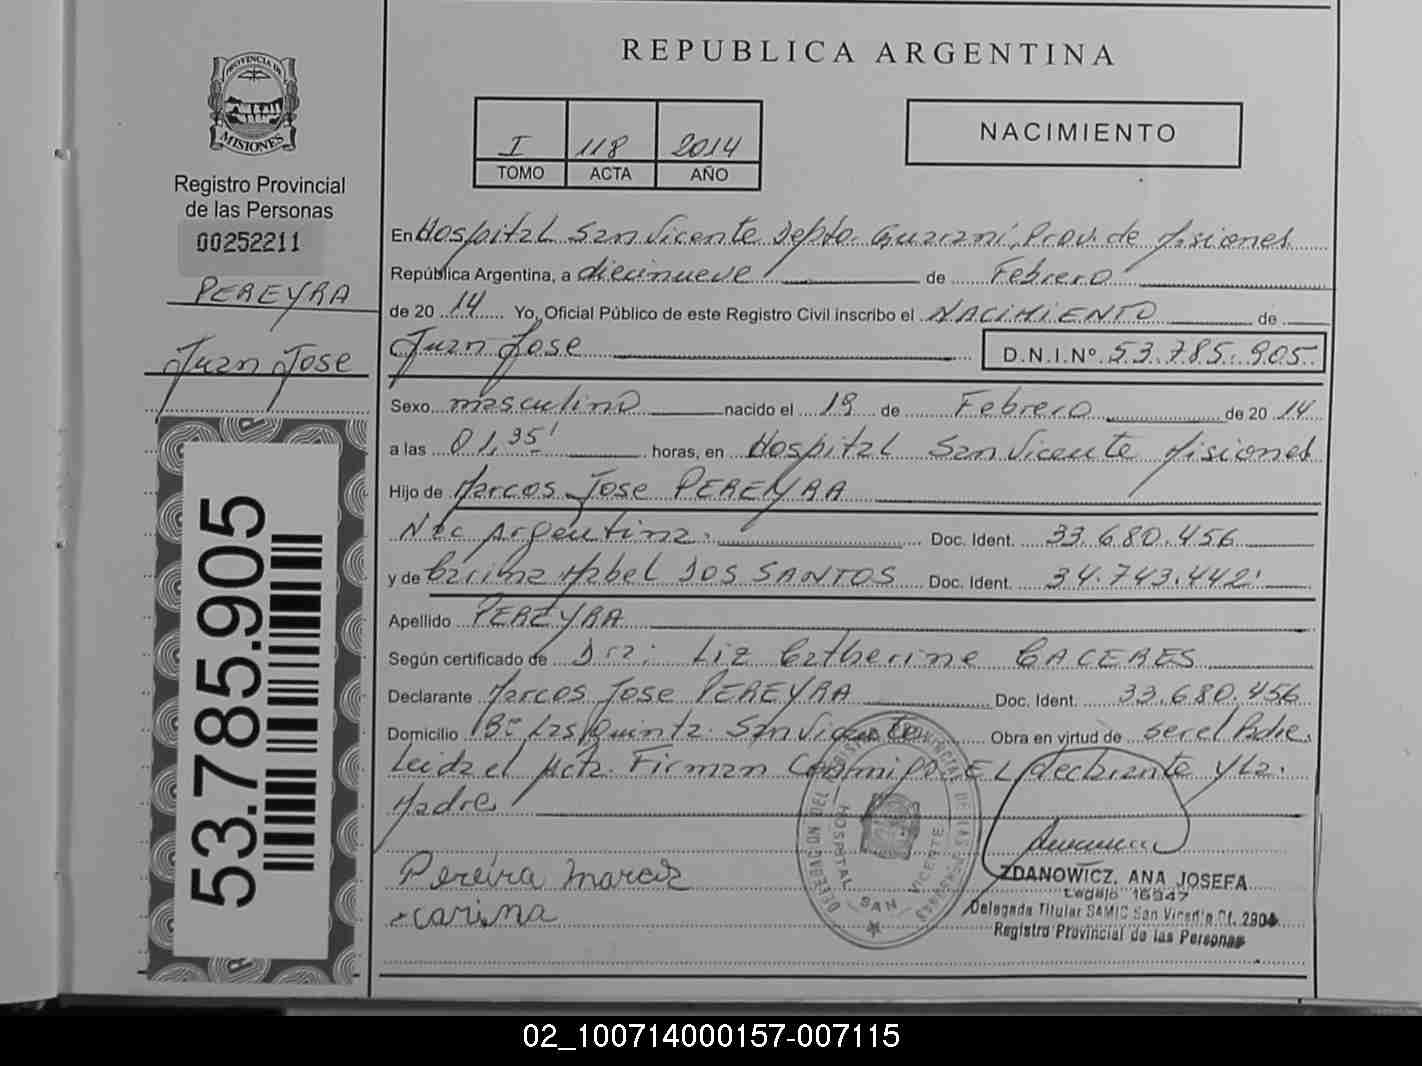 PROVINCIA DE
MISIONES
Registro Provincial
de las Personas
00252211
PEREYRA
Juan Jose
53.785.905
REPUBLICA ARGENTINA
I 118 2014
TOMO ACTA AÑO
NACIMIENTO
En Hospital San Vicente Depto. Guaraní, Prov. de Misiones
República Argentina, a diecinueve de Febrero
de 20 14 Yo, Oficial Público de este Registro Civil inscribo el NACIMIENTO de
Juan Jose D.N.I.Nº 53.785.905
Sexo masculino nacido el 19 de Febrero de 20 14
a las 01,35' horas, en Hospital San Vicente Misiones
Hijo de Marcos Jose PEREYRA
Nac Argentina. Doc. Ident. 33.680.456
y de Carina Mabel DOS SANTOS Doc. Ident. 34.743.442
Apellido PEREYRA
Según certificado de Dra: Liz Catherine CACERES
Declarante Marcos Jose PEREYRA Doc. Ident. 33.680.456
Domicilio Bº Las Quinta San Vicente Obra en virtud de ser el Padre.
Leida el Acta. Firman Conmigo EL declarante y La
Madre
Pereira Marcos
carina
HOSPITAL SAN VICENTE
ZDANOWICZ, ANA JOSEFA
Legajo 16947
Delegada Titular SAMIC San Vicente Of. 2904
Registro Provincial de las Personas
02_100714000157-007115